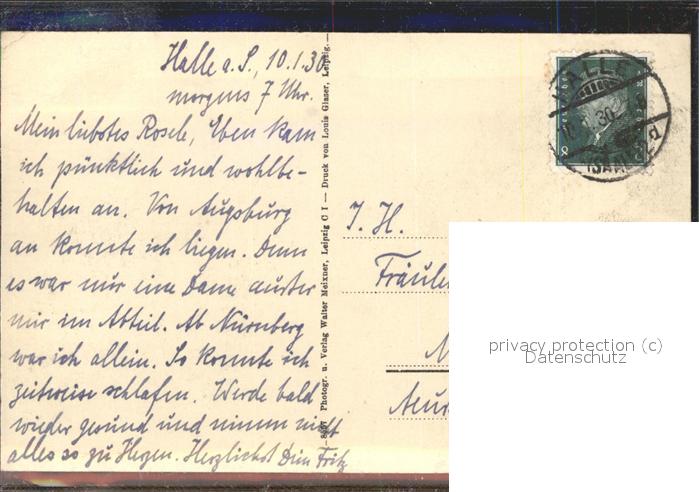 Halle a. S., 10.1.30
morgens 7 Uhr.
Mein liebstes Rosele, Eben kam
ich pünktlich und wohlbe-
halten an. Von Augsburg
an konnte ich liegen. Denn
es war nur eine Dame außer
mir im Abteil. Ab Nürnberg
war ich allein. So konnte ich
zeitweise schlafen. Werde bald
wieder gesund und nimm nicht
alles so zu Herzen. Herzlichst Dein Fritz
Photogr. u. Verlag Walter Meixner, Leipzig C 1 — Druck von Louis Glaser, Leipzig.
HALLE
30
(SAALE)
8
I. H.
Fräule
privacy protection (c)
Datenschutz